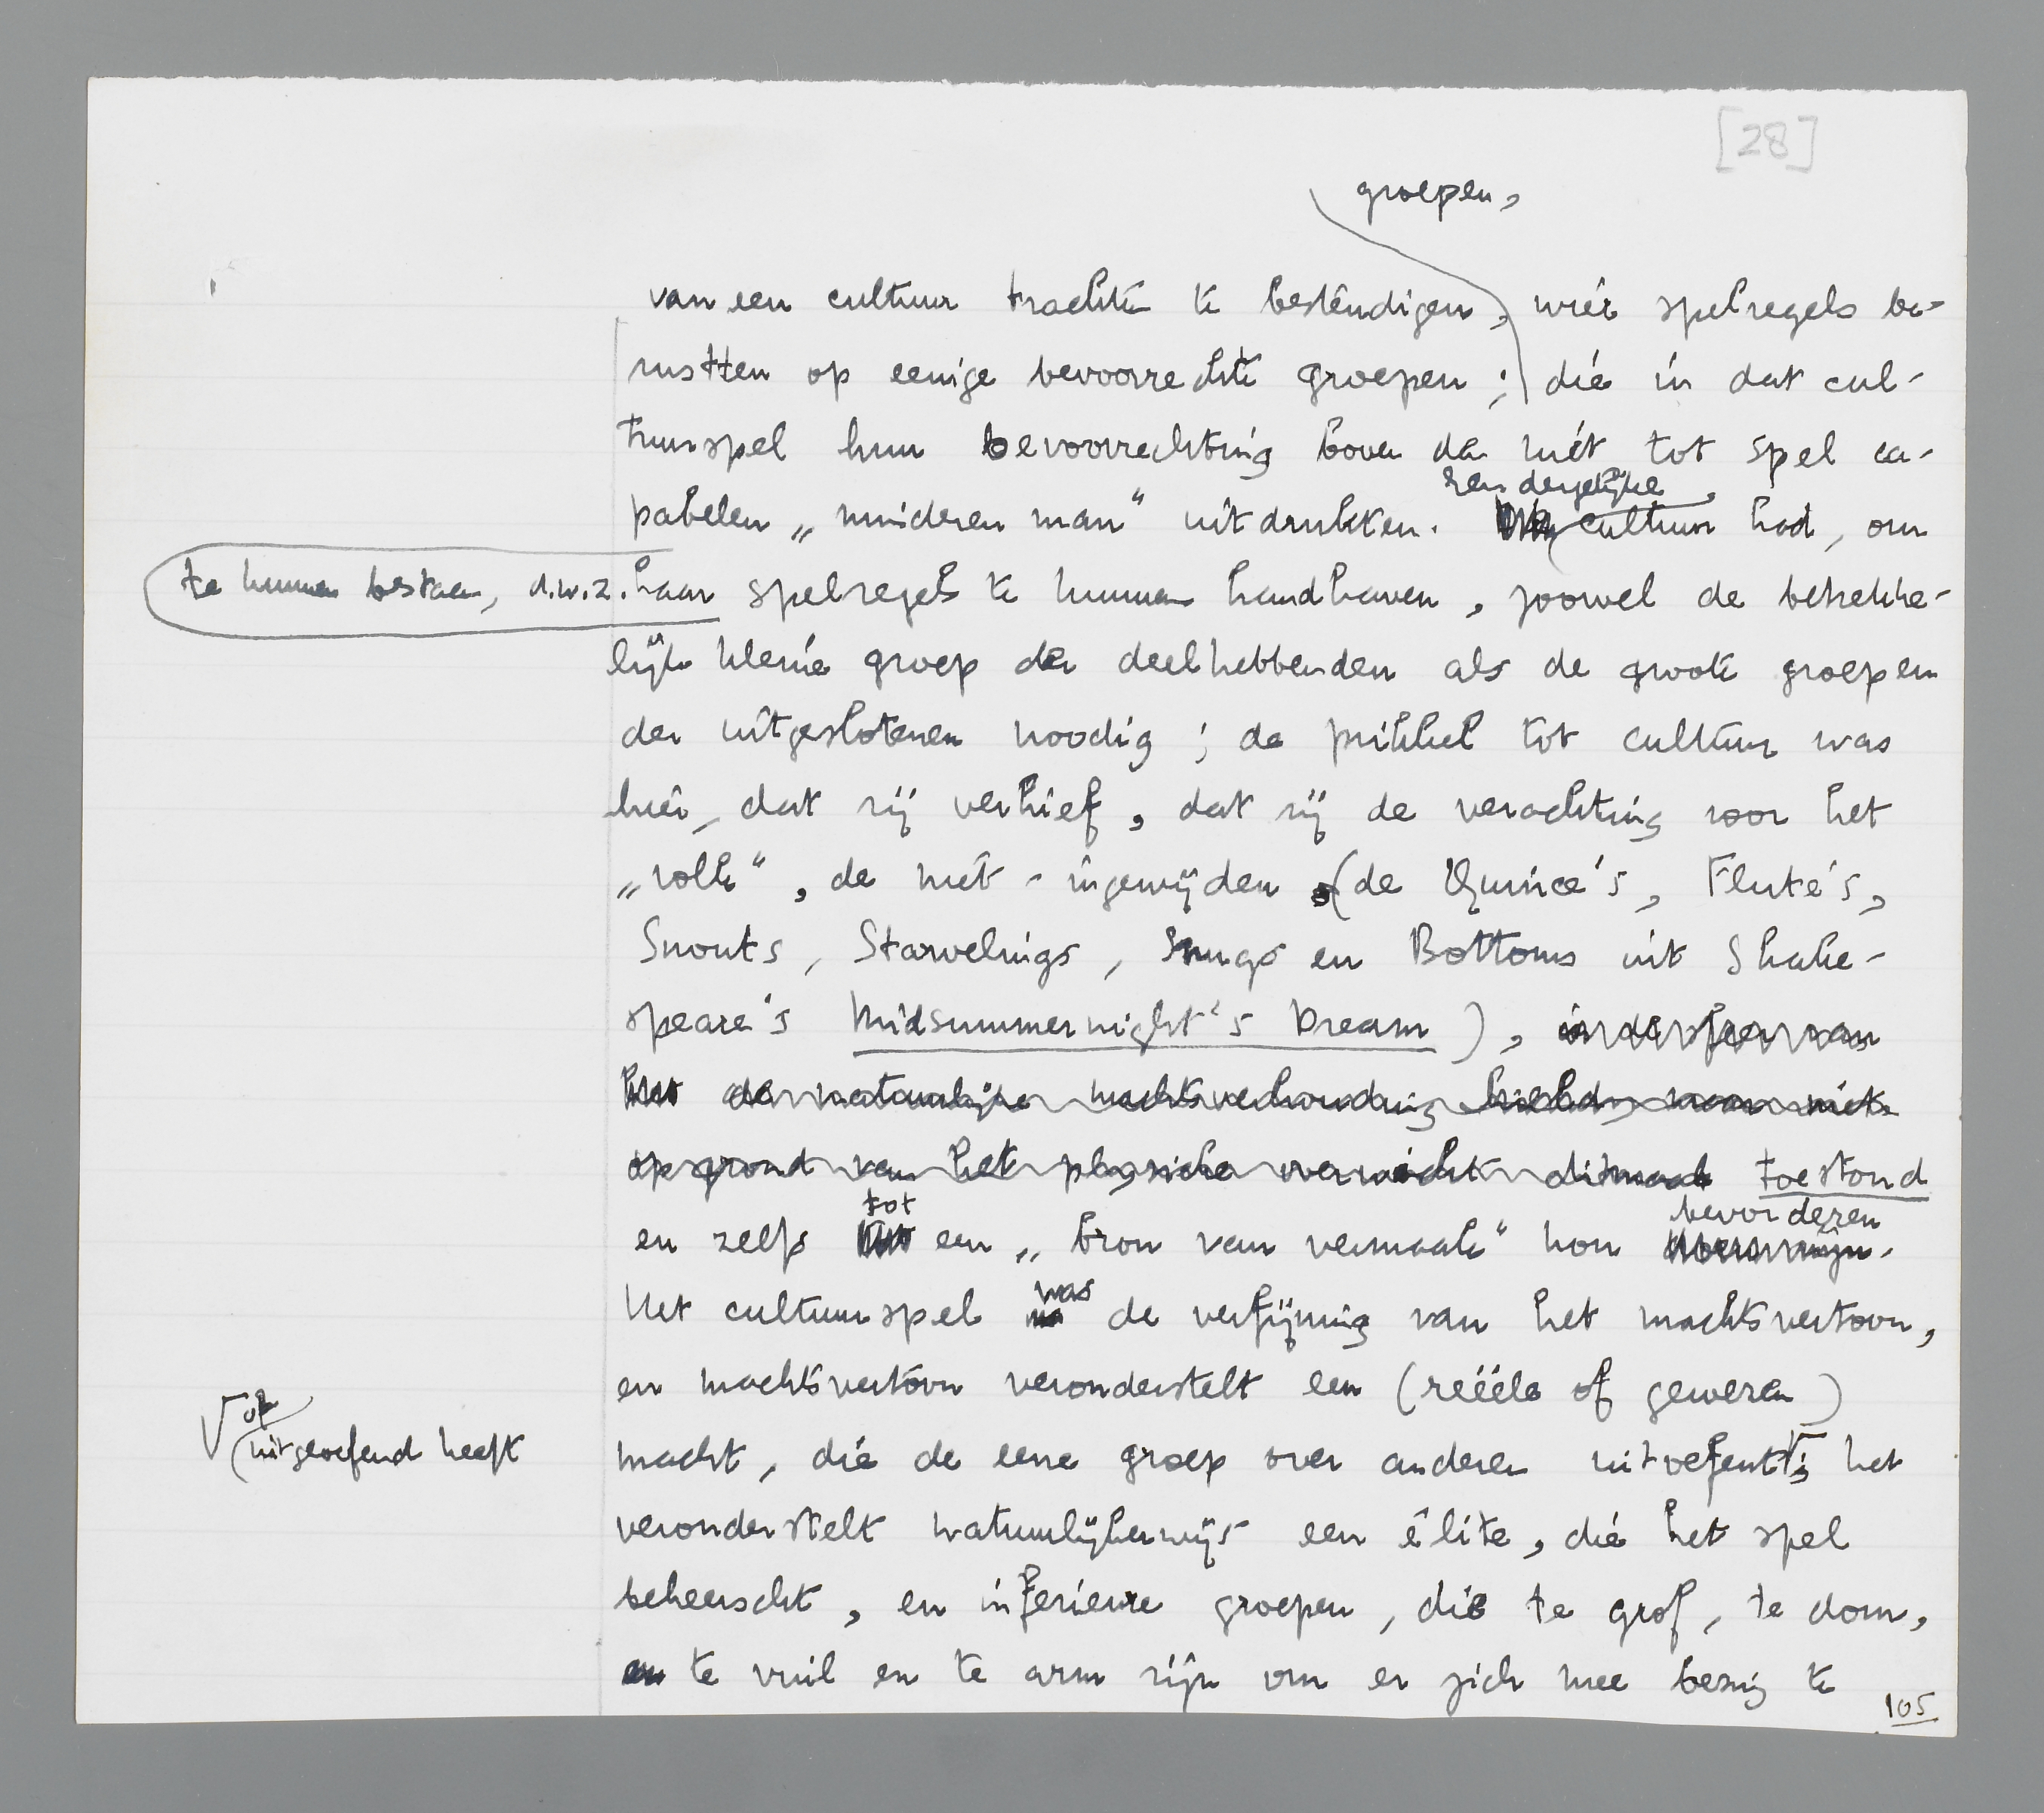 [28]
groepen,
van een cultuur trachtte te bestendigen, wier spelregels be-
rustten op eenige bevoorrechte groepen; die in dat cul-
tuurspel hun bevoorrechting boven den niet tot spel ca-
pabelen „minderen man” uitdrukken.
Een dergelijke
cultuur had, om
te kunnen bestaan, d.w.z. haar spelregels te kunnen handhaven, zoowel de betrekke-
lijk kleine groep der deelhebbenden als de groote groepen
der uitgeslotenen noodig; de prikkel tot cultuur was
hier, dat zij verhief, dat zij de verachting voor het
„volk”, de niet-ingewijden (de Quince's, Flute's,
Snouts, Starvelings, Snugs en Bottoms uit Shake-
speare's Midsummernight's Dream), in de sfeer van
het de natuurlijke machtsverhouding hield, maar niet
op grond van het physieke overwicht ditmaal toestond
tot
en zelfs een „bron van vermaak” kon
bevorderen
Het cultuurspel
was
de verfijning van het machtsvertoon,
en machtsvertoon veronderstelt een (reëele of gewezen)
macht, die de eene groep over anderen uitoefent; het
√ of
uitgeoefend heeft
veronderstelt natuurlijkerwijs een élite, die het spel
beheerscht, en inferieure groepen, die te grof, te dom,
en te vuil en te arm zijn om er zich mee bezig te
105